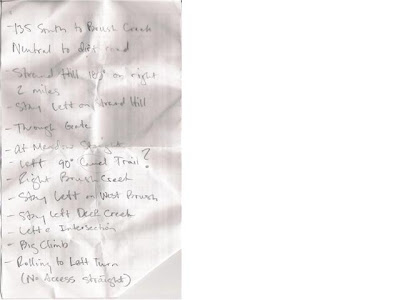 - 135 South to Brush Creek
Neutral to dirt road
- Strand Hill 180° on right
2 miles
- Stay Left on Strand Hill
- Through Gate
- at Meadow Straight
- Left 90° Canal Trail ?
- Right Brush Creek
- Stay Left on West Brush
- Stay Left Deer Creek
- Left @ Intersection
- Big Climb
- Rolling to Left Turn
(No Access straight)